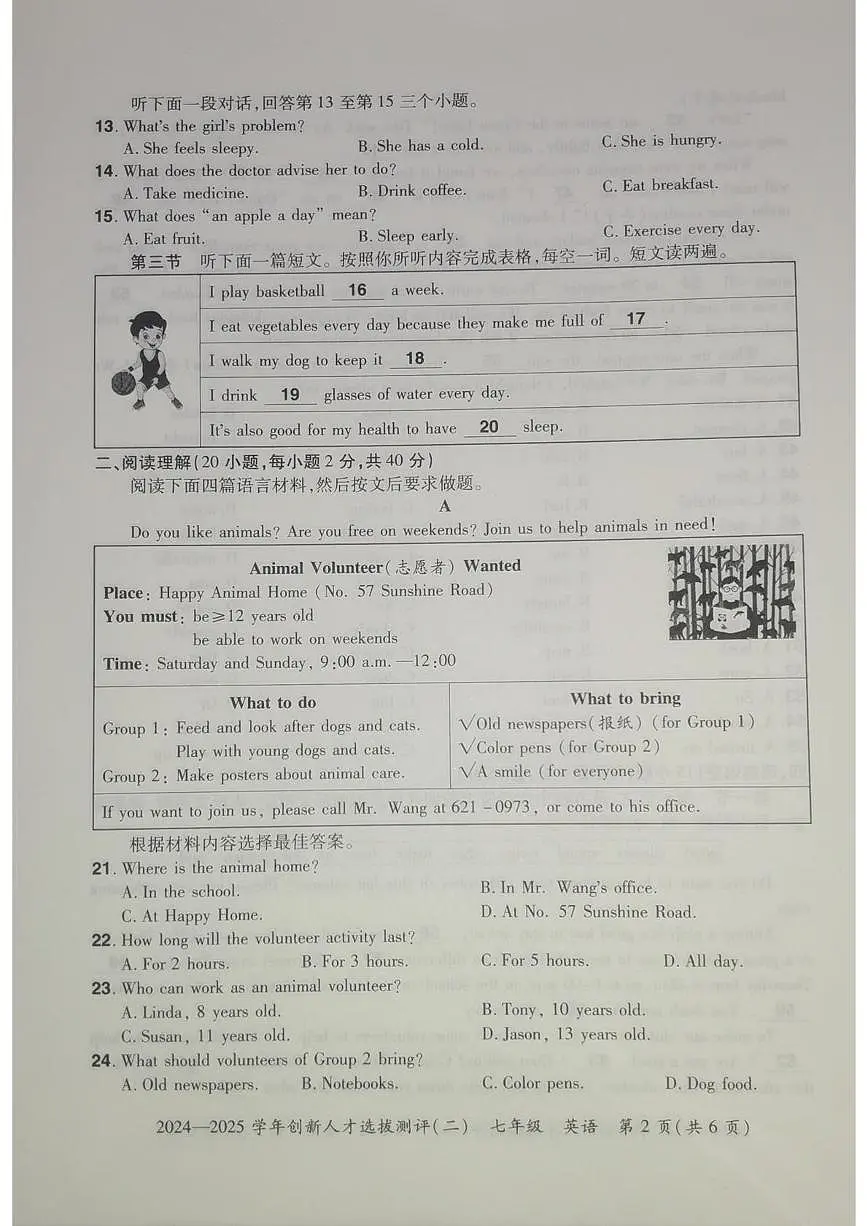 听下面一段对话,回答第 13 至第 15 三个小题。
13. What's the girl's problem?
A. She feels sleepy. B. She has a cold. C. She is hungry.
14. What does the doctor advise her to do?
A. Take medicine. B. Drink coffee. C. Eat breakfast.
15. What does “an apple a day” mean?
A. Eat fruit. B. Sleep early. C. Exercise every day.
第三节 听下面一篇短文。按照你所听内容完成表格,每空一词。短文读两遍。
I play basketball 16 a week.
I eat vegetables every day because they make me full of 17 .
I walk my dog to keep it 18 .
I drink 19 glasses of water every day.
It's also good for my health to have 20 sleep.
二、阅读理解(20 小题,每小题 2 分,共 40 分)
阅读下面四篇语言材料,然后按文后要求做题。
A
Do you like animals? Are you free on weekends? Join us to help animals in need!
Animal Volunteer(志愿者) Wanted
Place: Happy Animal Home (No. 57 Sunshine Road)
You must: be≥12 years old
be able to work on weekends
Time: Saturday and Sunday, 9:00 a.m.—12:00
What to do
Group 1: Feed and look after dogs and cats.
Play with young dogs and cats.
Group 2: Make posters about animal care.
What to bring
√Old newspapers(报纸) (for Group 1)
√Color pens (for Group 2)
√A smile (for everyone)
If you want to join us, please call Mr. Wang at 621-0973, or come to his office.
根据材料内容选择最佳答案。
21. Where is the animal home?
A. In the school. B. In Mr. Wang's office.
C. At Happy Home. D. At No. 57 Sunshine Road.
22. How long will the volunteer activity last?
A. For 2 hours. B. For 3 hours. C. For 5 hours. D. All day.
23. Who can work as an animal volunteer?
A. Linda, 8 years old. B. Tony, 10 years old.
C. Susan, 11 years old. D. Jason, 13 years old.
24. What should volunteers of Group 2 bring?
A. Old newspapers. B. Notebooks. C. Color pens. D. Dog food.
2024—2025 学年创新人才选拔测评(二) 七年级 英语 第 2 页(共 6 页)